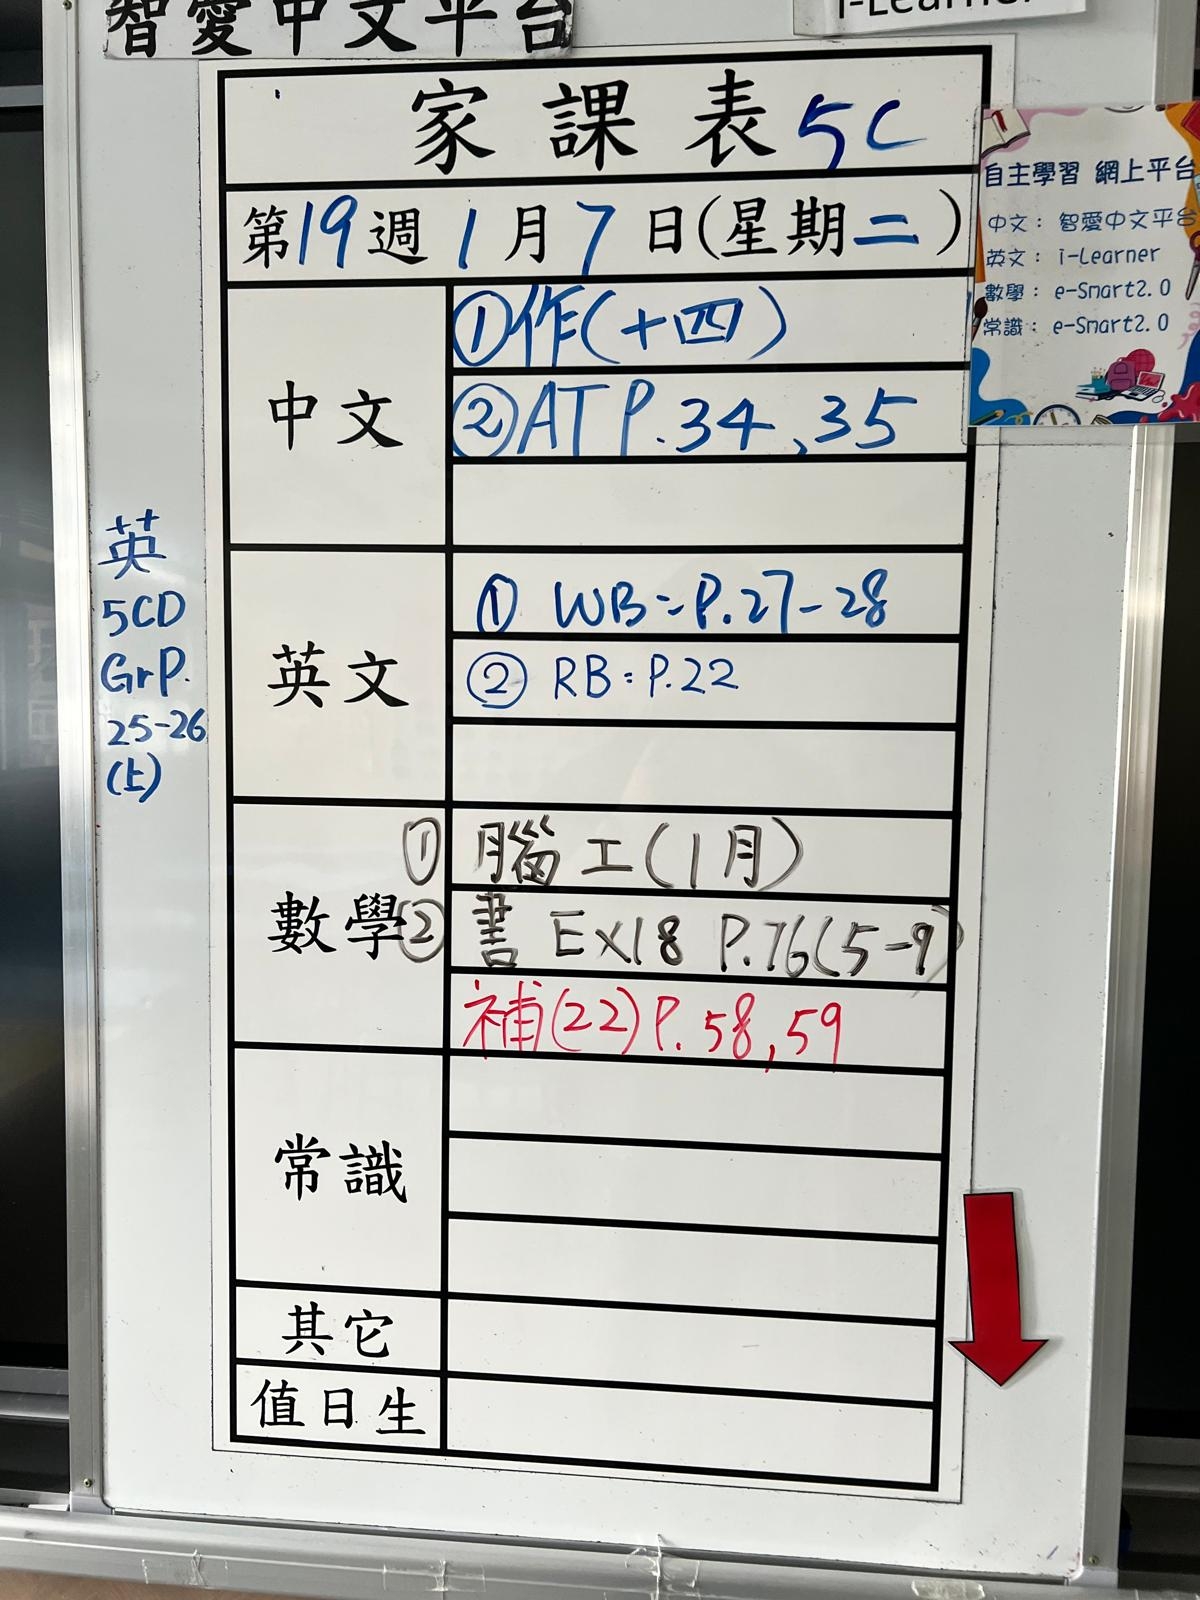 智愛中文平台
i-Learner
家課表 5C
第19週 1月7日(星期二)
自主學習 網上平台
中文： 智愛中文平台
英文： i-Learner
數學： e-Smart2.0
常識： e-Smart2.0
中文
①作(十四)
②AT P.34,35
英
5CD
GrP.
25-26
(上)
英文
① WB=P.27-28
② RB:P.22
數學
① 腦工(1月)
② 書 EX18 P.76(5-9)
補(22)P.58,59
常識
其它
值日生